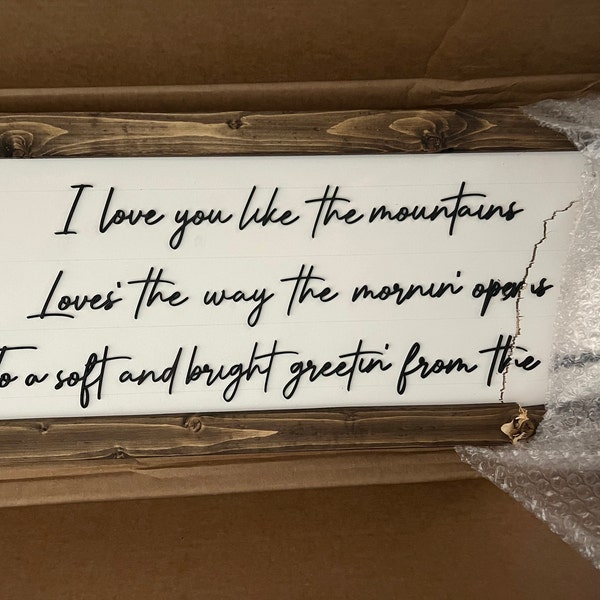 I love you like the mountains
Loves' the way the mornin' opens
To a soft and bright greetin' from the